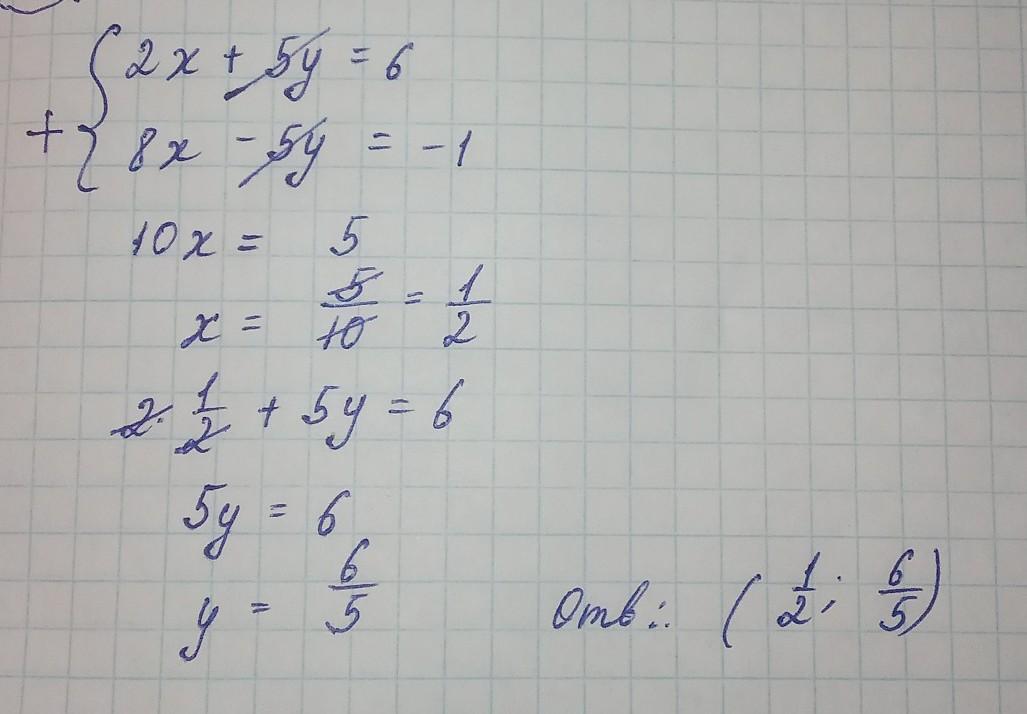 + { 2x + 5y = 6
8x - 5y = -1
10x = 5
x = 5/10 = 1/2
2 · 1/2 + 5y = 6
5y = 6
y = 6/5 Отв.: (1/2; 6/5)